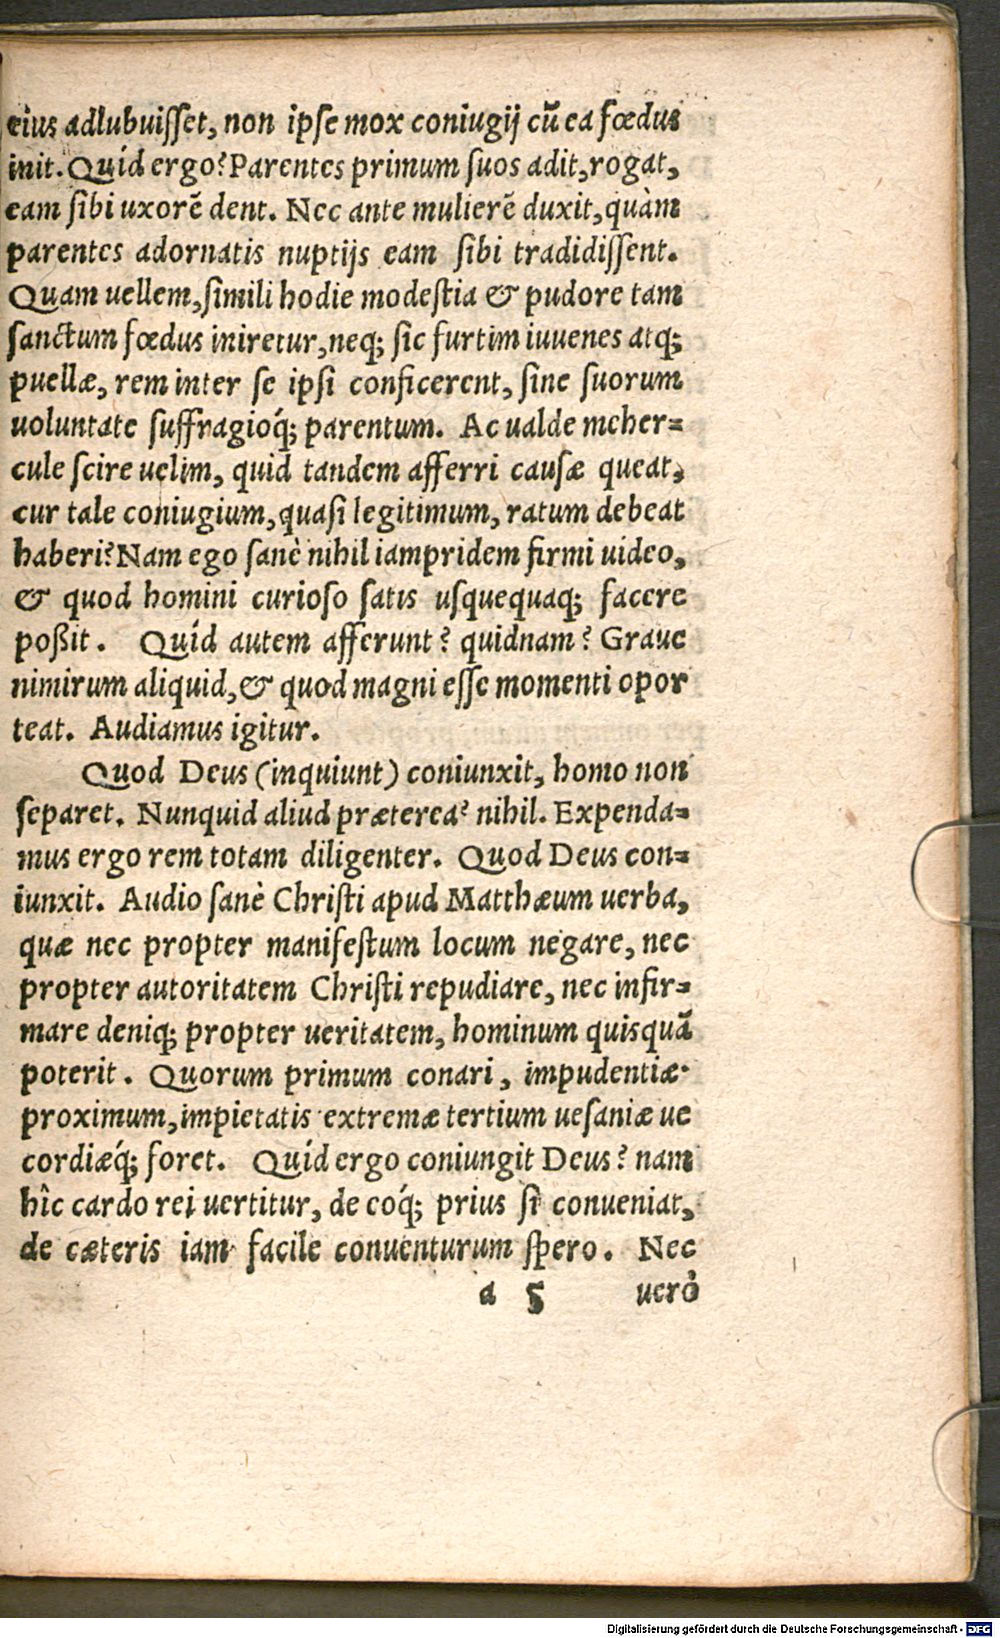 eius adlubuisset, non ipse mox coniugij cū ea fœdus
init. Quid ergo? Parentes primum suos adit, rogat,
eam sibi uxorē dent. Nec ante mulierē duxit, quàm
parentes adornatis nuptijs eam sibi tradidissent.
Quam uellem, simili hodie modestia & pudore tam
sanctum fœdus iniretur, neq; sic furtim iuuenes atq;
puellæ, rem inter se ipsi conficerent, sine suorum
uoluntate suffragioq́; parentum. Ac ualde meher-
cule scire uelim, quid tandem afferri causæ queat,
cur tale coniugium, quasi legitimum, ratum debeat
haberi? Nam ego sanè nihil iampridem firmi uideo,
& quod homini curioso satis usquequaq; facere
poßit. Quid autem afferunt? quidnam? Graue
nimirum aliquid, & quod magni esse momenti opor
teat. Audiamus igitur.
Quod Deus (inquiunt) coniunxit, homo non
separet. Nunquid aliud præterea? nihil. Expenda-
mus ergo rem totam diligenter. Quod Deus con-
iunxit. Audio sanè Christi apud Matthæum uerba,
quæ nec propter manifestum locum negare, nec
propter autoritatem Christi repudiare, nec infir-
mare deniq; propter ueritatem, hominum quisquā
poterit. Quorum primum conari, impudentiæ
proximum, impietatis extremæ tertium uesaniæ ue
cordiæq́; foret. Quid ergo coniungit Deus? nam
hîc cardo rei uertitur, de eoq́; prius si conueniat,
de cæteris iam facile conuenturum spero. Nec
a 5 uerò
Digitalisierung gefördert durch die Deutsche Forschungsgemeinschaft - DFG